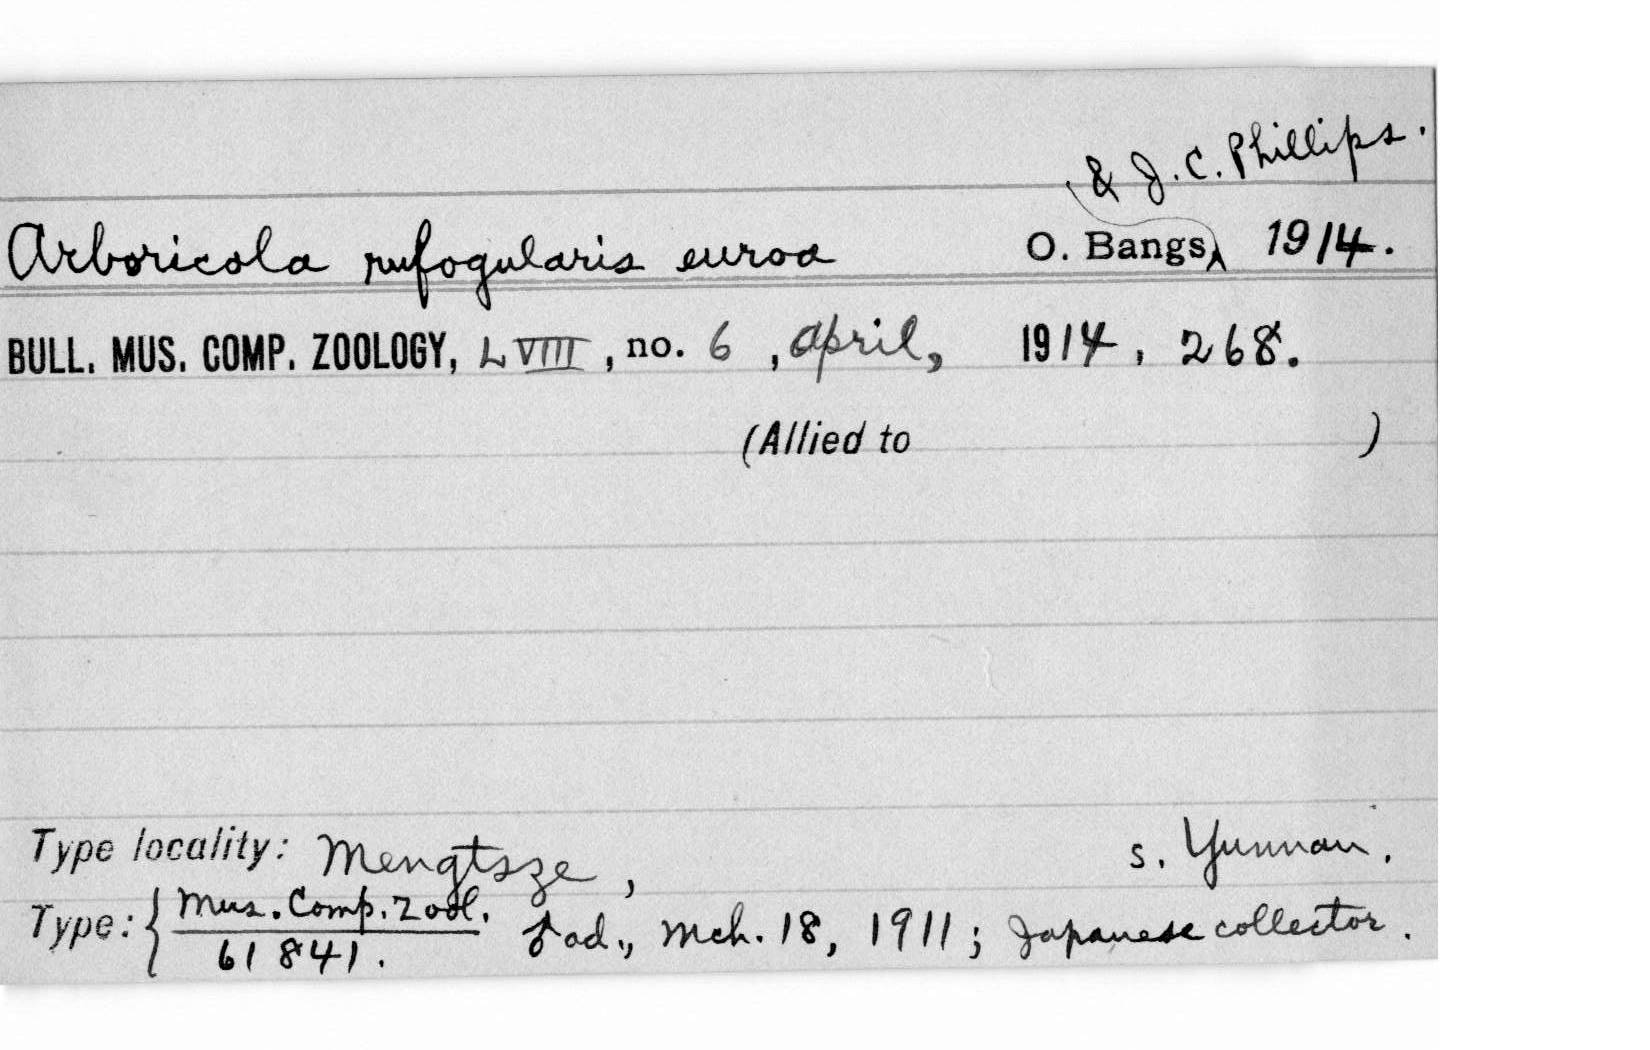 & J. C. Phillips.
Arboricola rufogularis euroa O. Bangs, 1914.
BULL. MUS. COMP. ZOOLOGY, LVIII, no. 6, April, 1914, 268.
(Allied to )
Type locality: Mengtsze, S. Yunnan.
Type: { Mus. Comp. Zool.
61841. ad., Mch. 18, 1911; Japanese collector.